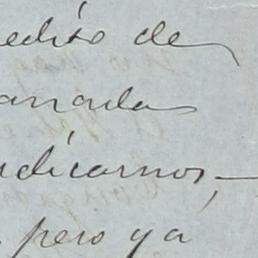 edito de
anadas
udicarnos,—
pero ya